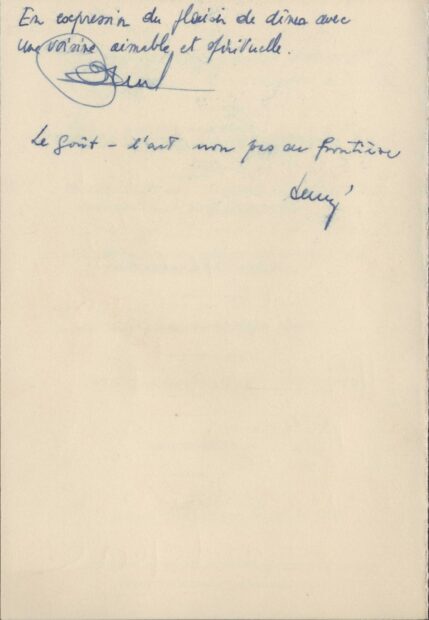 En expression du plaisir de diner avec
une voisine aimable et spirituelle.
Le goût - l'art non pas de frontière